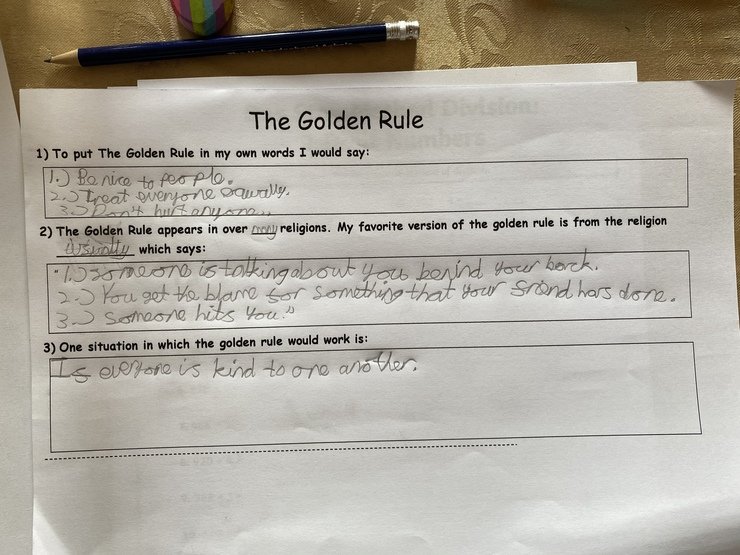 The Golden Rule
1) To put The Golden Rule in my own words I would say:
1.) Be nice to people.
2.) Treat everyone equally.
3.) Don't hurt anyone.
2) The Golden Rule appears in over many religions. My favorite version of the golden rule is from the religion
usually which says:
"1.) someone is talking about you behind your back.
2.) You get the blame for something that your friend has done.
3.) Someone hits you."
3) One situation in which the golden rule would work is:
If everyone is kind to one another.